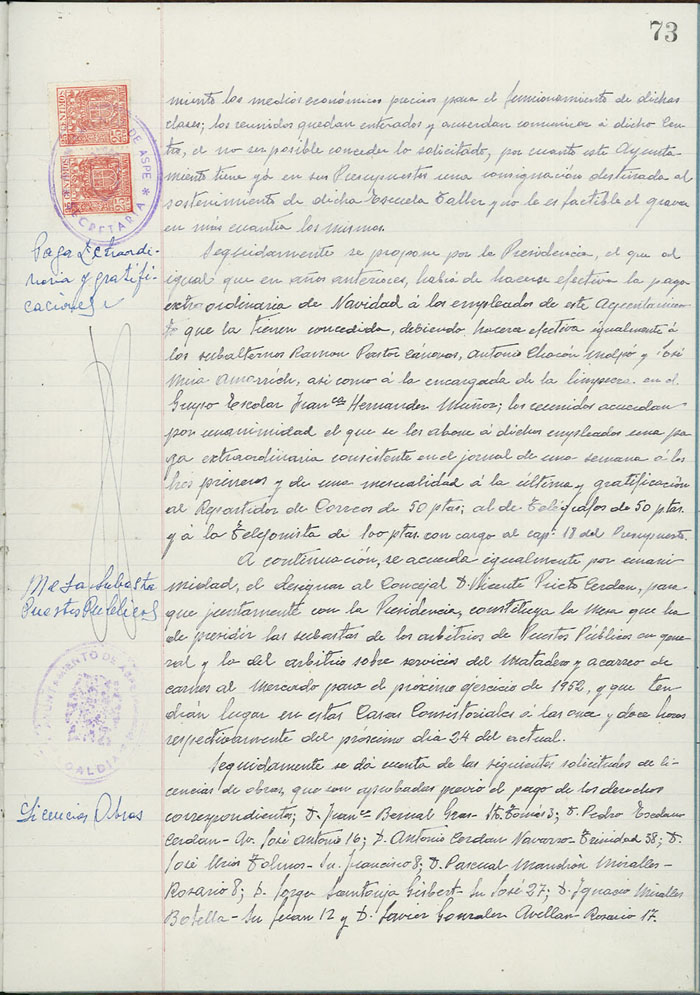 73
25 CENTIMOS
25 CENTIMOS
DE ASPE
SECRETARIA
miento los medios económicos precisos para el funcionamiento de dichas
clases; los reunidos quedan enterados y acuerdan comunicar á dicho Cen-
tro, el no ser posible conceder lo solicitado, por cuanto este Ayunta-
miento tiene yá en sus Presupuestos una consignación destinada al
sostenimiento de dicha Escuela Taller y no le es factible el gravar
en más cuantía los mismos.
Paga Extraordi-
naria y gratifi-
caciones
Seguidamente se propone por la Presidencia, el que al
igual que en años anteriores, había de hacerse efectiva la paga
extraordinaria de Navidad á los empleados de este Ayuntamien-
to que la tienen concedida, debiendo hacerse efectiva igualmente á
los subalternos Ramon Pastor Cánovas, Antonio Chacón y José
Mira, asi como á la encargada de la limpieza en el
Grupo Escolar Franca Hernandez Muñoz; los reunidos acuerdan
por unanimidad el que se les abone á dichos empleados una pa-
ga extraordinaria consistente en el jornal de una semana á los
tres primeros y de una mensualidad á la última y gratificación
al Repartidor de Correos de 50 ptas; al de Telégrafos de 50 ptas.
y á la Telefonista de 100 ptas. con cargo al capº 18 del Presupuesto.
Mesa Subasta
Puestos Públicos
A continuación, se acuerda igualmente por unani-
midad, el designar al Concejal D. Vicente Prieto Cerdan, para
que juntamente con la Presidencia, constituya la Mesa que ha
de presidir las subastas de los arbitrios de Puestos Públicos en gene-
ral y la del arbitrio sobre servicios del Matadero y acarreo de
carnes al Mercado para el próximo ejercicio de 1952, y que ten-
drán lugar en estas Casas Consistoriales á las once y doce horas
respectivamente del próximo dia 24 del actual.
AYUNTAMIENTO DE ASPE
ALCALDIA
Licencias Obras
Seguidamente se dá cuenta de las siguientes solicitudes de li-
cencias de obras, que son aprobadas previó el pago de los derechos
correspondientes; D. Franco Bernal Gras - Sto. Tomás 3; D. Pedro Escolano
Cerdan - Av. José Antonio 16; D. Antonio Cerdan Navarro - Trinidad 38; D.
José - Sn. Francisco 8; D. Pascual Miralles -
Rosario 8; D. Jorge Santonja Gisbert - Sn José 27; D. Ignacio Miralles
Botella - Sn Juan 12 y D. Javier Gonzalez Avellan - Rosario 17.